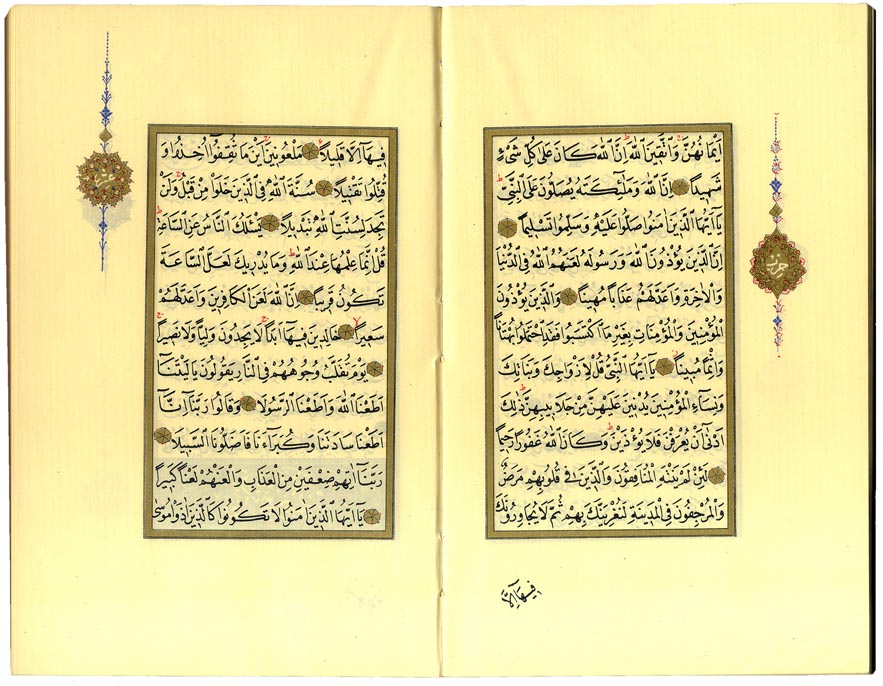 اَيْمَانُهُنَّ وَاتَّقِينَ اللّٰهَ اِنَّ اللّٰهَ كَانَ عَلٰى كُلِّ شَيْءٍ
شَهِيدًا اِنَّ اللّٰهَ وَمَلٰٓئِكَتَهُ يُصَلُّونَ عَلَى النَّبِيِّ
يَٓا اَيُّهَا الَّذِينَ اٰمَنُوا صَلُّوا عَلَيْهِ وَسَلِّمُوا تَسْلِيمًا
اِنَّ الَّذِينَ يُؤْذُونَ اللّٰهَ وَرَسُولَهُ لَعَنَهُمُ اللّٰهُ فِي الدُّنْيَا
وَالْاٰخِرَةِ وَاَعَدَّ لَهُمْ عَذَابًا مُهِينًا وَالَّذِينَ يُؤْذُونَ
الْمُؤْمِنِينَ وَالْمُؤْمِنَاتِ بِغَيْرِ مَا اكْتَسَبُوا فَقَدِ احْتَمَلُوا بُهْتَانًا
وَاِثْمًا مُبِينًا يَٓا اَيُّهَا النَّبِيُّ قُلْ لِاَزْوَاجِكَ وَبَنَاتِكَ
وَنِسَٓاءِ الْمُؤْمِنِينَ يُدْنِينَ عَلَيْهِنَّ مِنْ جَلَابِيبِهِنَّ ذٰلِكَ
اَدْنٰٓى اَنْ يُعْرَفْنَ فَلَا يُؤْذَيْنَ وَكَانَ اللّٰهُ غَفُورًا رَحِيمًا
لَئِنْ لَمْ يَنْتَهِ الْمُنَافِقُونَ وَالَّذِينَ فِي قُلُوبِهِمْ مَرَضٌ
وَالْمُرْجِفُونَ فِي الْمَدِينَةِ لَنُغْرِيَنَّكَ بِهِمْ ثُمَّ لَا يُجَاوِرُونَكَ
فِيهَٓا اِلَّا
حزب
فِيهَٓا اِلَّا قَلِيلًا مَلْعُونِينَ اَيْنَ مَا ثُقِفُٓوا اُخِذُوا وَ
قُتِّلُوا تَقْتِيلًا سُنَّةَ اللّٰهِ فِي الَّذِينَ خَلَوْا مِنْ قَبْلُ وَلَنْ
تَجِدَ لِسُنَّتِ اللّٰهِ تَبْدِيلًا يَسْـَٔلُكَ النَّاسُ عَنِ السَّاعَةِ
قُلْ اِنَّمَا عِلْمُهَا عِنْدَ اللّٰهِ وَمَا يُدْرِيكَ لَعَلَّ السَّاعَةَ
تَكُونُ قَرِيبًا اِنَّ اللّٰهَ لَعَنَ الْكَافِرِينَ وَاَعَدَّ لَهُمْ
سَعِيرًا خَالِدِينَ فِيهَٓا اَبَدًا لَا يَجِدُونَ وَلِيًّا وَلَا نَصِيرًا
يَوْمَ تُقَلَّبُ وُجُوهُهُمْ فِي النَّارِ يَقُولُونَ يَا لَيْتَنَٓا
اَطَعْنَا اللّٰهَ وَاَطَعْنَا الرَّسُولَا وَقَالُوا رَبَّنَٓا اِنَّٓا
اَطَعْنَا سَادَتَنَا وَكُبَرَٓاءَنَا فَاَضَلُّونَا السَّبِيلَا
رَبَّنَٓا اٰتِهِمْ ضِعْفَيْنِ مِنَ الْعَذَابِ وَالْعَنْهُمْ لَعْنًا كَبِيرًا
يَٓا اَيُّهَا الَّذِينَ اٰمَنُوا لَا تَكُونُوا كَالَّذِينَ اٰذَوْا مُوسٰى